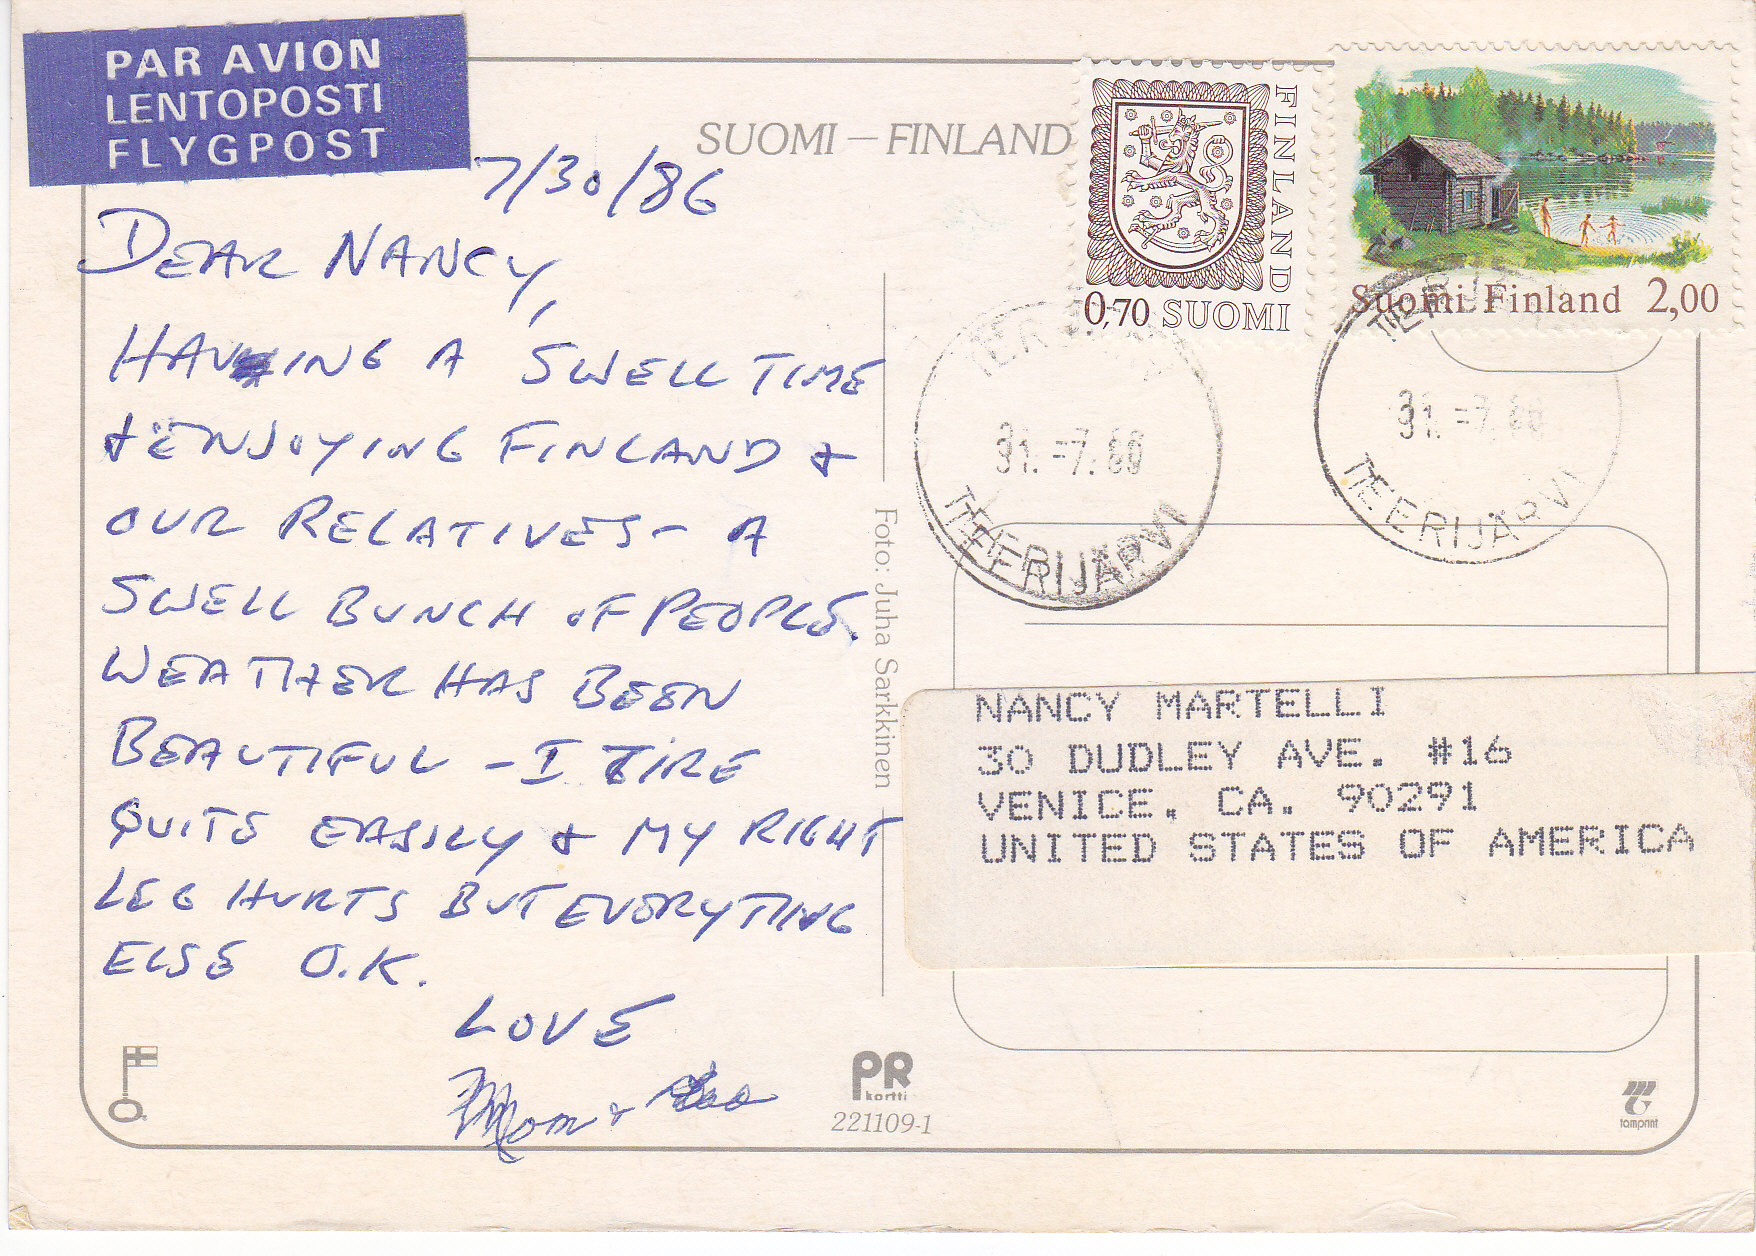 PAR AVION
LENTOPOSTI
FLYGPOST
SUOMI – FINLAND
FINLAND
0,70 SUOMI
Suomi Finland 2,00
7/30/86
DEAR NANCY,
HAVING A SWELL TIME
& ENJOYING FINLAND &
OUR RELATIVES – A
SWELL BUNCH OF PEOPLE.
WEATHER HAS BEEN
BEAUTIFUL – I TIRE
QUITE EASILY & MY RIGHT
LEG HURTS BUT EVERYTHING
ELSE O.K.
LOVE
Mom &
31.-7.86
TEERIJÄRVI
31.-7.86
TEERIJÄRVI
Foto: Juha Sarkkinen
NANCY MARTELLI
30 DUDLEY AVE. #16
VENICE, CA. 90291
UNITED STATES OF AMERICA
PR
kortti
221109-1
tamprint